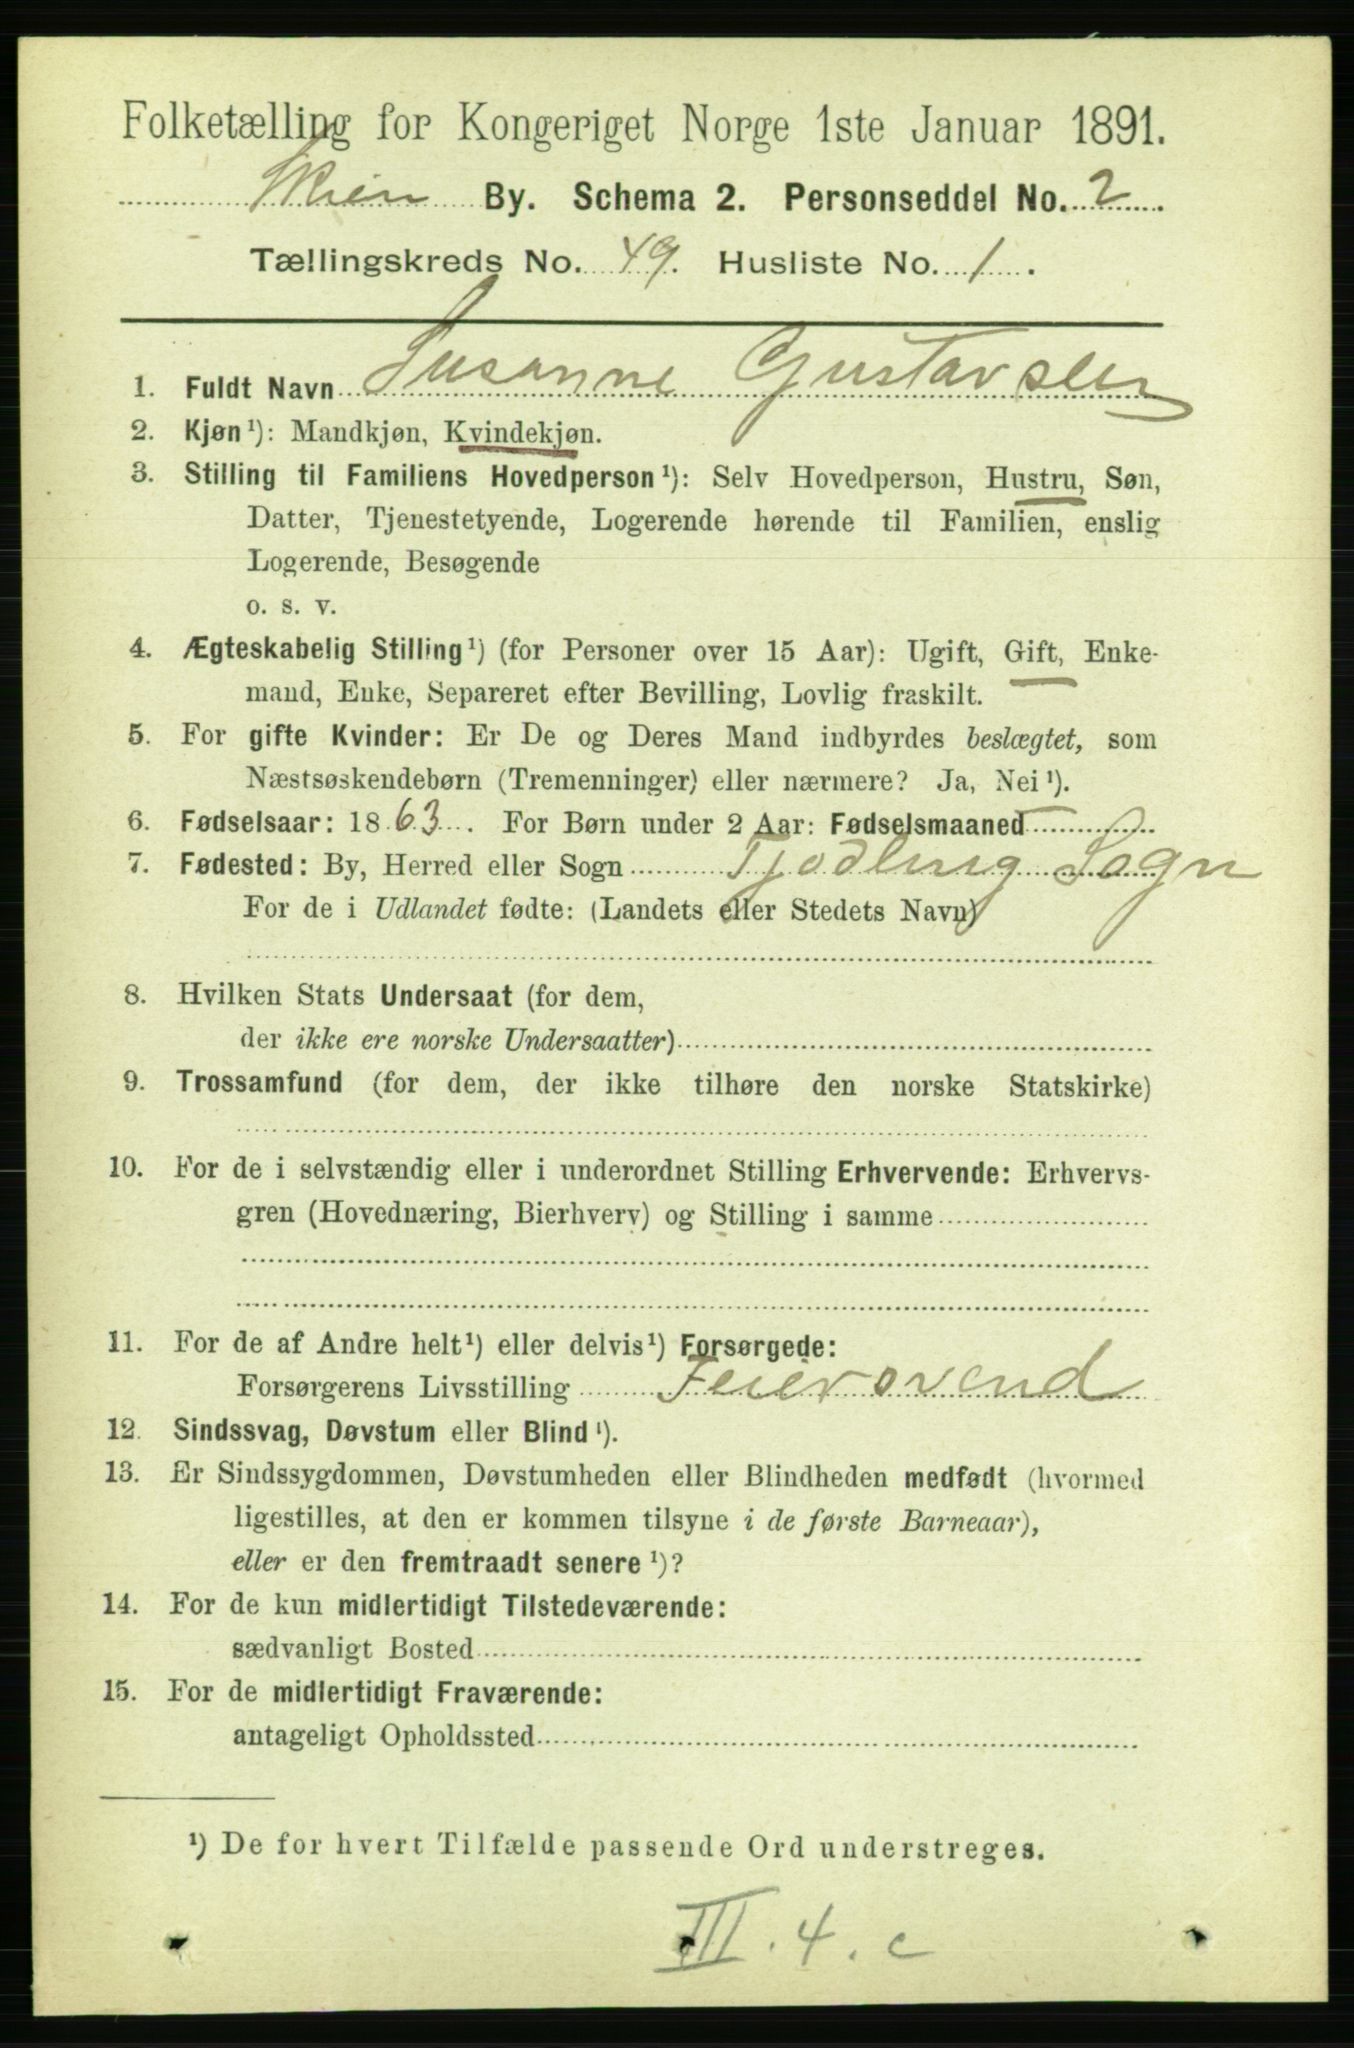 Folketælling for Kongeriget Norge 1ste Januar 1891.
Skien By. Schema 2. Personseddel No. 2.
Tællingskreds No. 49. Husliste No. 1.
1. Fuldt Navn Susanne Gustavsen
2. Kjøn¹): Mandkjøn, Kvindekjøn.
3. Stilling til Familiens Hovedperson¹): Selv Hovedperson, Hustru, Søn,
Datter, Tjenestetyende, Logerende hørende til Familien, enslig
Logerende, Besøgende
o. s. v.
4. Ægteskabelig Stilling¹) (for Personer over 15 Aar): Ugift, Gift, Enke-
mand, Enke, Separeret efter Bevilling, Lovlig fraskilt.
5. For gifte Kvinder: Er De og Deres Mand indbyrdes beslægtet, som
Næstsøskendebørn (Tremenninger) eller nærmere? Ja, Nei¹).
6. Fødselsaar: 1863. For Børn under 2 Aar: Fødselsmaaned
7. Fødested: By, Herred eller Sogn Tjødling Sogn
For de i Udlandet fødte: (Landets eller Stedets Navn)
8. Hvilken Stats Undersaat (for dem,
der ikke ere norske Undersaatter)
9. Trossamfund (for dem, der ikke tilhøre den norske Statskirke)
10. For de i selvstændig eller i underordnet Stilling Erhvervende: Erhvervs-
gren (Hovednæring, Bierhverv) og Stilling i samme
11. For de af Andre helt¹) eller delvis¹) Forsørgede:
Forsørgerens Livsstilling Feiersvend
12. Sindssvag, Døvstum eller Blind¹).
13. Er Sindssygdommen, Døvstumheden eller Blindheden medfødt (hvormed
ligestilles, at den er kommen tilsyne i de første Barneaar),
eller er den fremtraadt senere¹)?
14. For de kun midlertidigt Tilstedeværende:
sædvanligt Bosted
15. For de midlertidigt Fraværende:
antageligt Opholdssted
¹) De for hvert Tilfælde passende Ord understreges.
III. 4. c